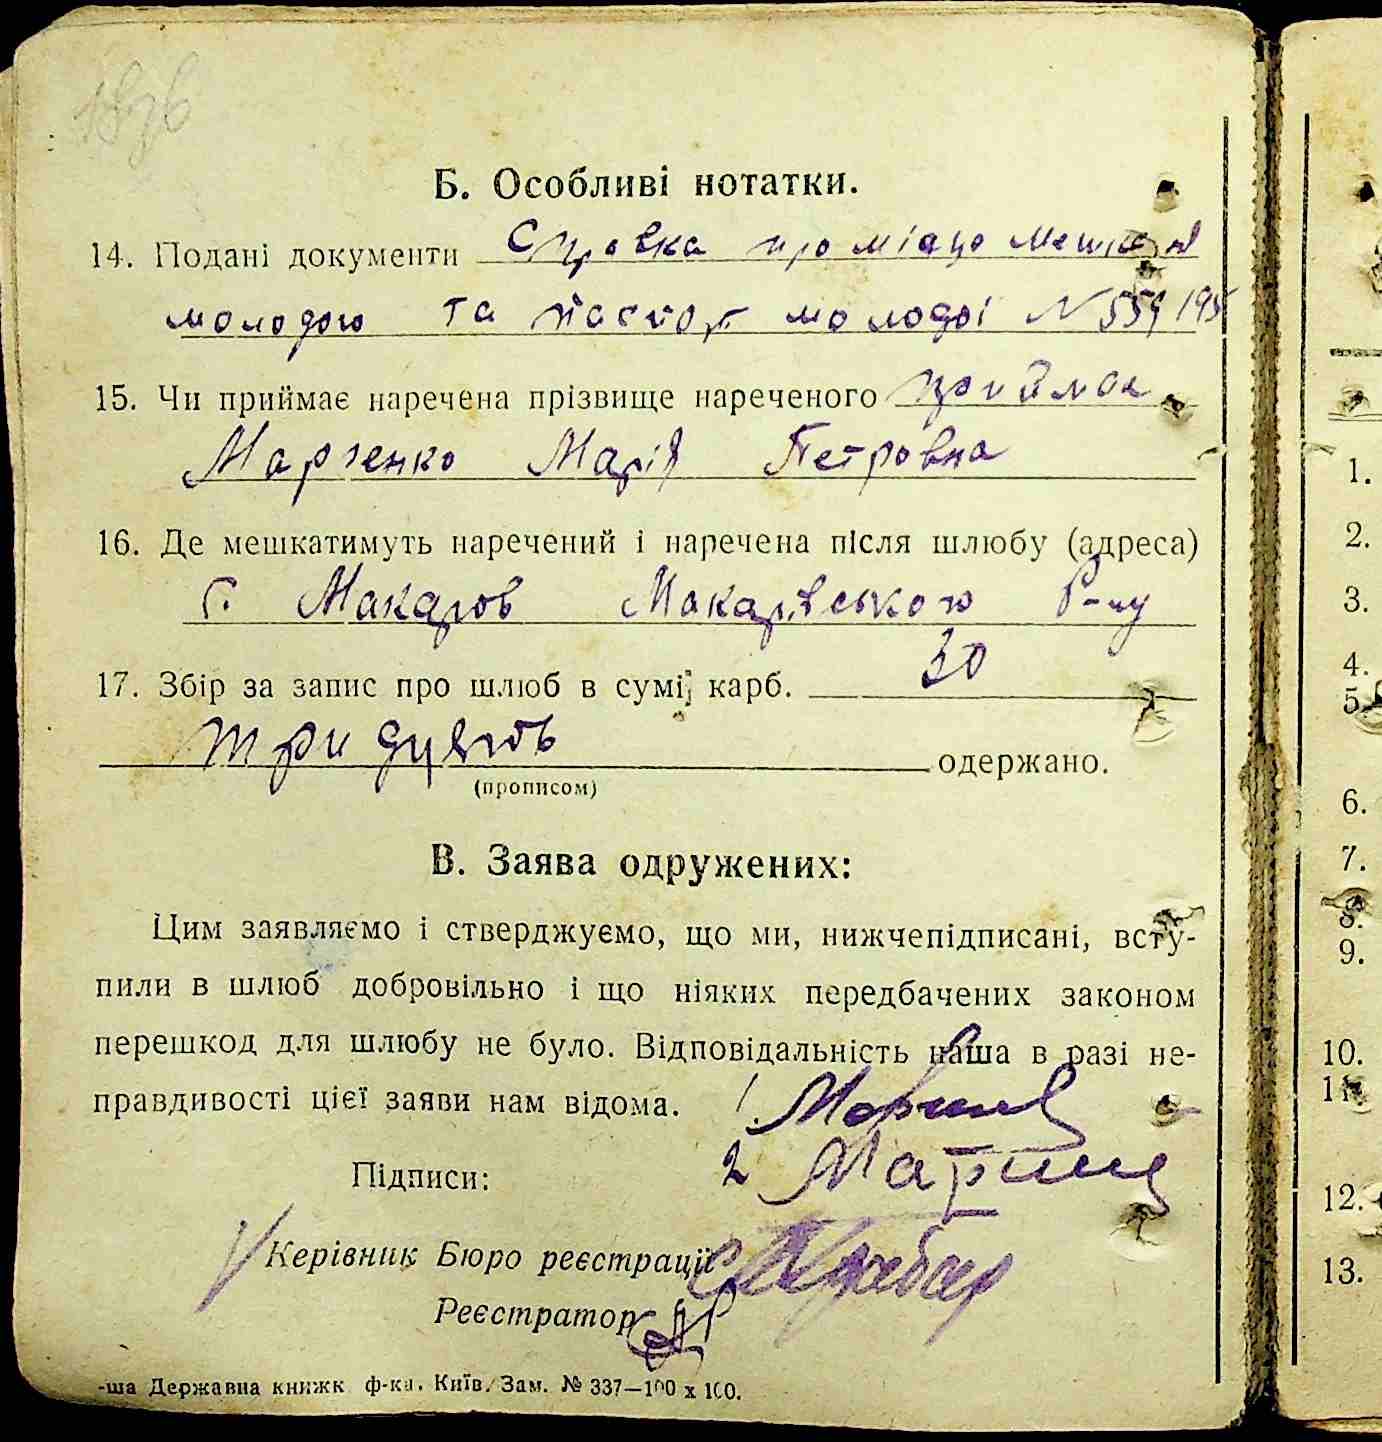 Б. Особливі нотатки.
14. Подані документи Справка про місцо мешкан
молодого та паспорт молодоі N 559195
15. Чи приймає наречена прізвище нареченого приймає
Марченко Марія Петровна
16. Де мешкатимуть наречений і наречена після шлюбу (адреса)
с. Макаров Макарівського р-ну
17. Збір за запис про шлюб в сумі, карб. 30
три
одержано.
(прописом)
В. Заява одружених:
Цим заявляємо і стверджуємо, що ми, нижчепідписані, всту-
пили в шлюб добровільно і що ніяких передбачених законом
перешкод для шлюбу не було. Відповідальність наша в разі не-
правдивості цієї заяви нам відома. 1.
2
Підписи:
Керівник Бюро реєстрації
Реєстратор
-ша Державна книжк ф-ка. Київ. Зам. № 337—100 х 100.
1.
2.
3.
4.
5.
6.
7.
8.
9.
10.
11.
12.
13.